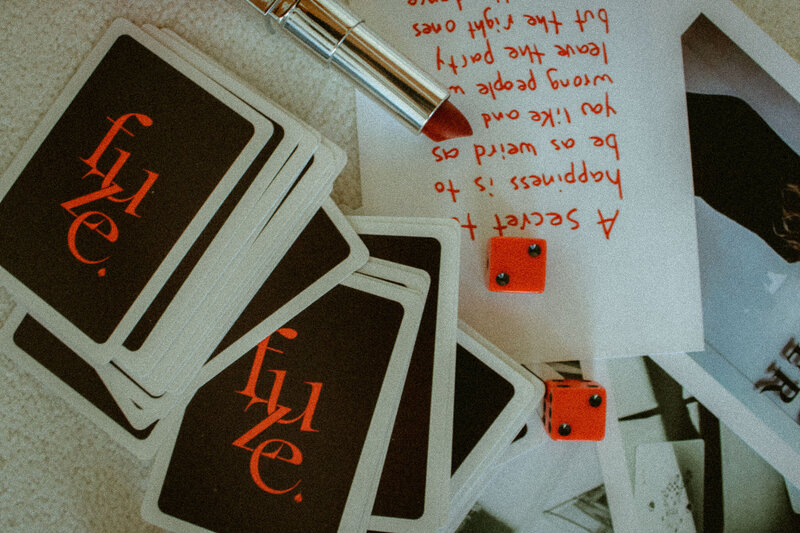 fu
ze.
fu
ze.
A secret to
happiness is to
be as weird as
you like and
wrong people
leave the party
but the right ones